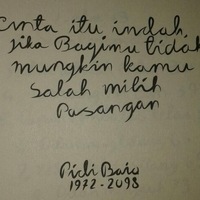 Cinta itu indah,
jika Bagimu tidak
mungkin kamu
salah milih
Pasangan
Pidi Baiq
1972-2098